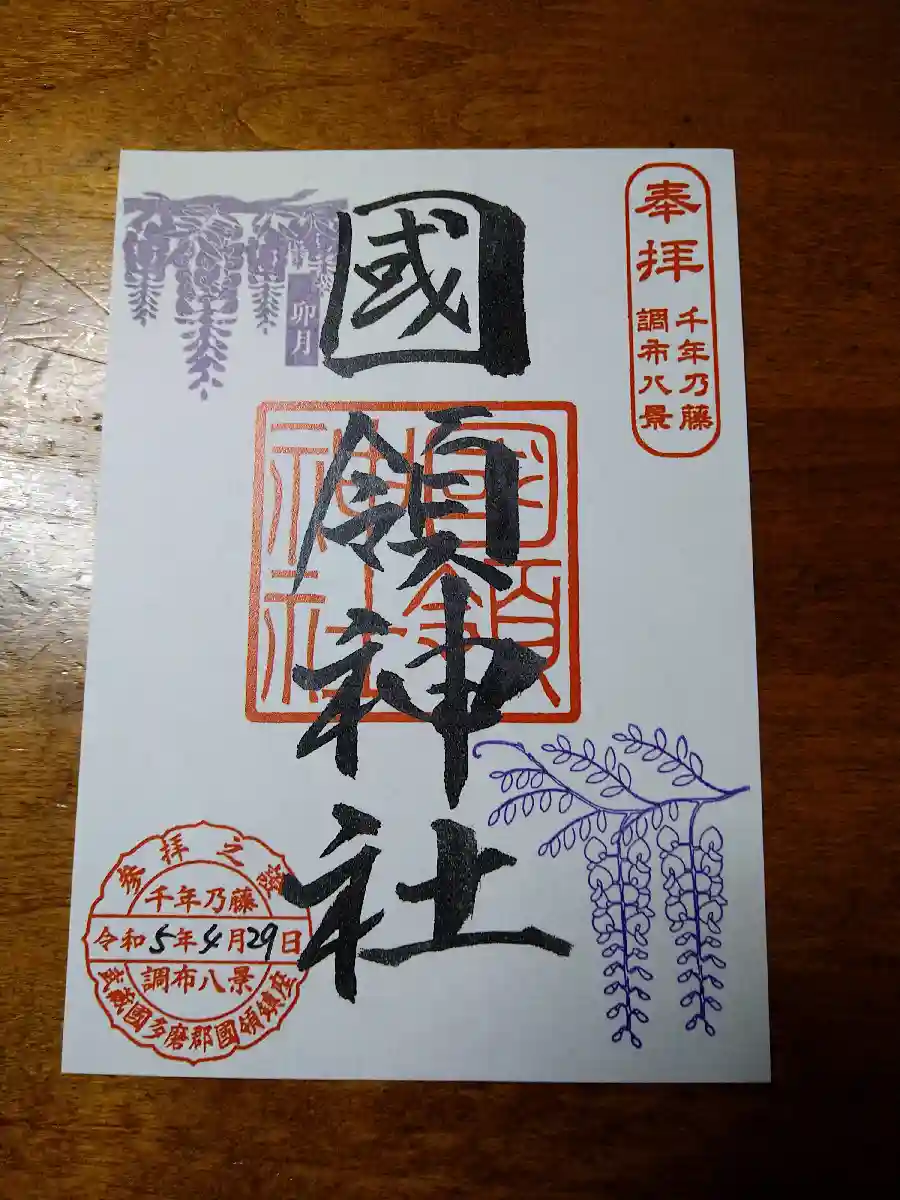 奉拝
千年乃藤
調布八景
國領神社
國領
神社
卯月
参拝之証
千年乃藤
令和5年4月29日
調布八景
武蔵國多磨郡國領鎮座